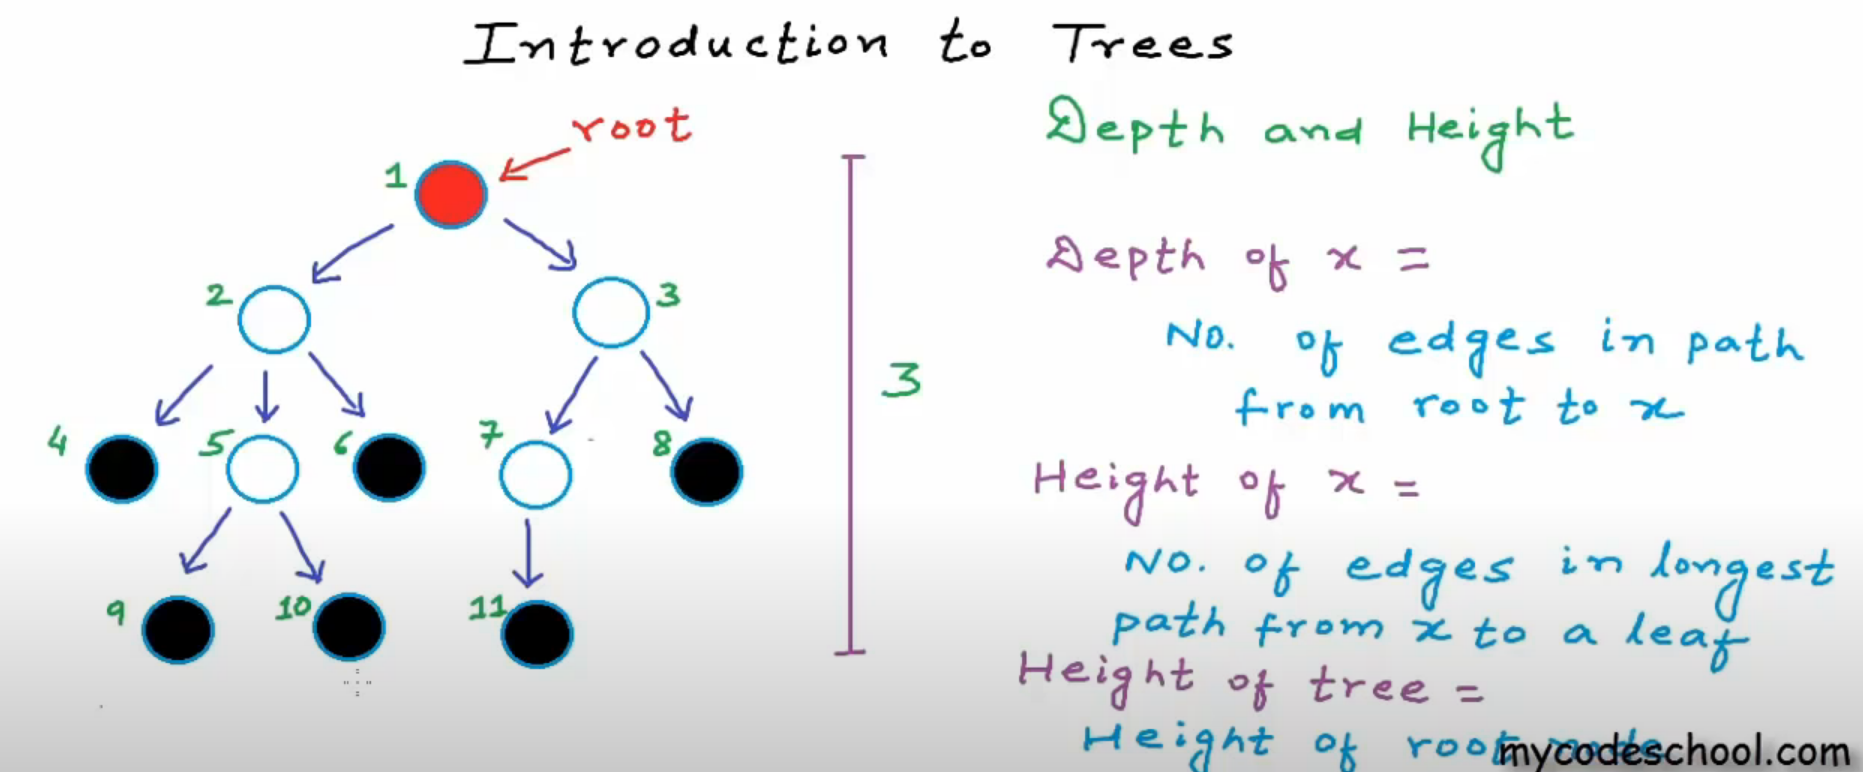 Introduction to Trees
root
1
2
3
4
5
6
7
8
9
10
11
3
Depth and Height
Depth of x =
No. of edges in path
from root to x
Height of x =
No. of edges in longest
path from x to a leaf
Height of tree =
Height of root node
mycodeschool.com